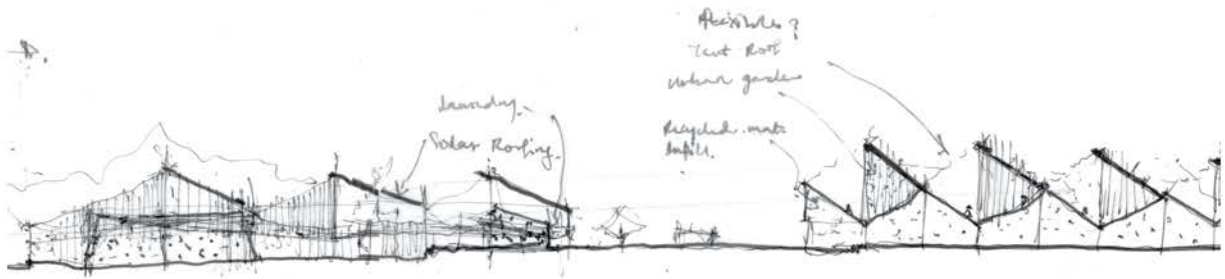 Laundry.
Solar Roofing.
Flexible ?
Tent Roof
Urban garden
Recycled mat.
Infill.